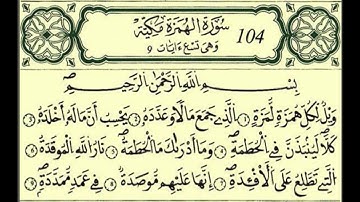 سُورَةُ الْهُمَزَةِ مَكِّيَّةٌ 104
وَهِيَ تِسْعُ ءَايَاتٍ ٩
بِسْمِ اللَّهِ الرَّحْمَٰنِ الرَّحِيمِ
وَيْلٌ لِّكُلِّ هُمَزَةٍ لُّمَزَةٍ ١ الَّذِي جَمَعَ مَالًا وَعَدَّدَهُ ٢ يَحْسِبُ أَنَّ مَالَهُ أَخْلَدَهُ ٣
كَلَّا لَيُنۢبَذَنَّ فِي الْحُطَمَةِ ٤ وَمَا أَدْرَىٰكَ مَا الْحُطَمَةُ ٥ نَارُ اللَّهِ الْمُوقَدَةُ ٦
الَّتِي تَطَّلِعُ عَلَى الْأَفْـِٔدَةِ ٧ إِنَّهَا عَلَيْهِم مُّوصَدَةٌ ٨ فِي عَمَدٍ مُّمَدَّدَةٍ ٩